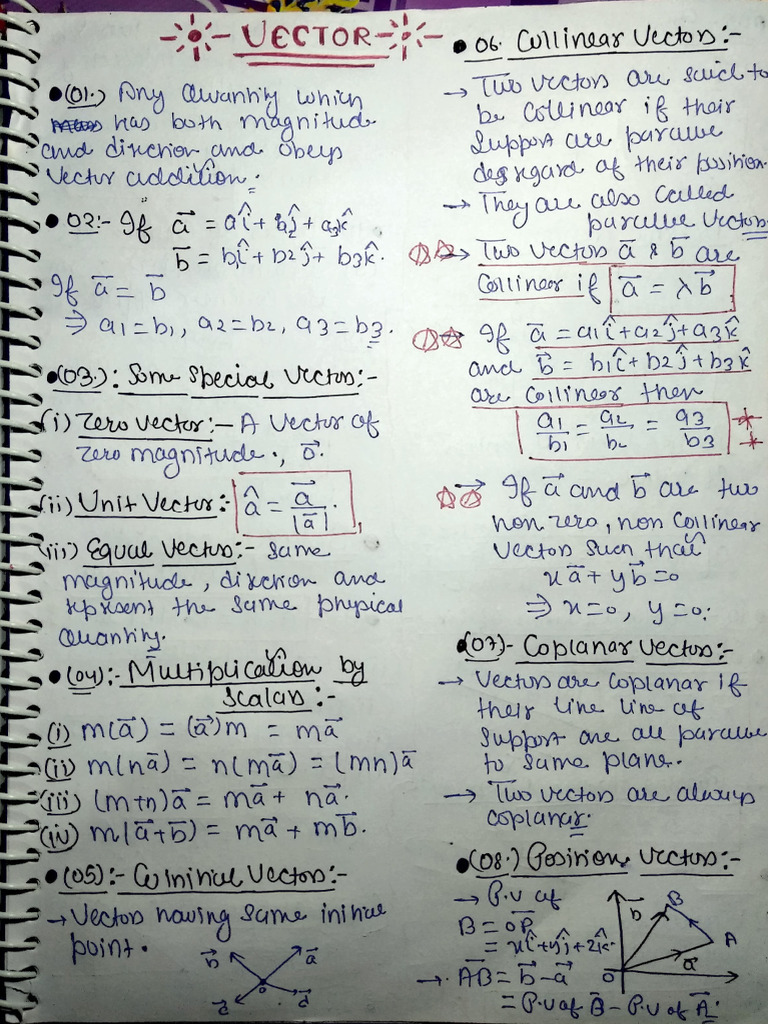 VECTOR
• (01.) Any Quantity which
has both magnitude
and direction and obeys
Vector addition.
• 02:- If a⃗ = aî + a2ĵ + a3k̂
b⃗ = b1î + b2ĵ + b3k̂.
If a⃗ = b⃗
⇒ a1 = b1, a2 = b2, a3 = b3.
• (03.): Some Special Vectors:-
(i) Zero Vector:- A Vector of
Zero magnitude., o⃗.
(ii) Unit Vector:- â = a⃗/|a⃗|.
(iii) Equal Vectors:- Same
magnitude, direction and
represent the same physical
Quantity.
• (04):- Multiplication by
Scalars:-
(i) m(a⃗) = (a⃗)m = ma⃗
(ii) m(na⃗) = n(ma⃗) = (mn)a⃗
(iii) (m+n)a⃗ = ma⃗ + na⃗.
(iv) m(a⃗+b⃗) = ma⃗ + mb⃗.
• (05):- Coinitial Vectors:-
→ Vectors having same initial
point.
b⃗ a⃗
o
d⃗ c⃗
• 06. Collinear Vectors:-
→ Two vectors are said to
be Collinear if their
Support are parallel
disregard of their position.
→ They are also called
parallel vectors.
→ Two vectors a⃗ & b⃗ are
Collinear if a⃗ = λb⃗
→ If a⃗ = a1î + a2ĵ + a3k̂
and b⃗ = b1î + b2ĵ + b3k̂
are collinear then
a1/b1 = a2/b2 = a3/b3
→ If a⃗ and b⃗ are two
non zero, non Collinear
Vectors such that
xa⃗ + yb⃗ = 0
⇒ x = 0, y = 0.
• (07)- Coplanar Vectors:-
→ Vectors are coplanar if
their line line of
Support are all parallel
to same plane.
→ Two vectors are always
coplanar.
• (08.) Position Vectors:-
→ P.V of
B = oP⃗
= xî + yĵ + zk̂.
→ AB⃗ = b⃗ - a⃗
= P.V of B⃗ - P.V of A⃗.
b⃗ B
A
a⃗
O